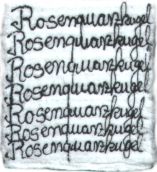 Rosenquarzkugel
Rosenquarzkugel
Rosenquarzkugel
Rosenquarzkugel
Rosenquarzkugel
Rosenquarzkugel
Rosenquarzkugel